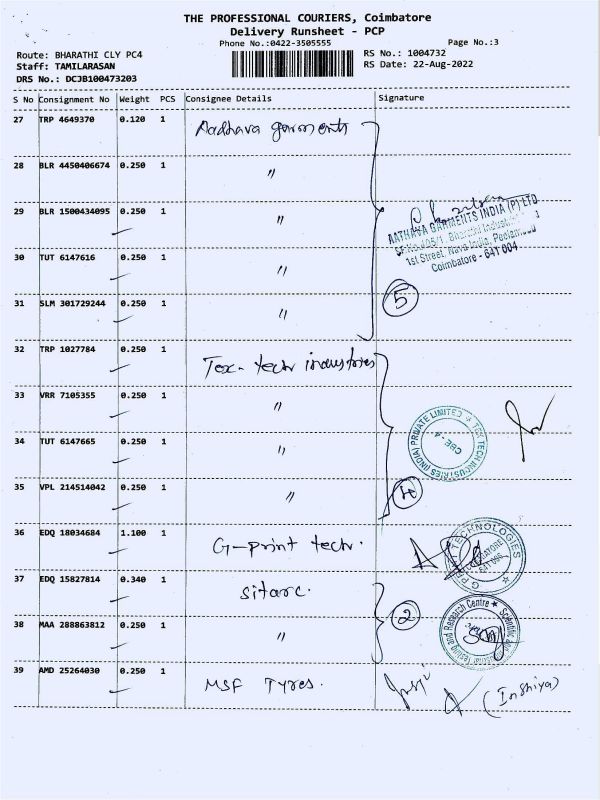 THE PROFESSIONAL COURIERS, Coimbatore
Delivery Runsheet - PCP
Phone No.:0422-3505555
Page No.:3
Route: BHARATHI CLY PC4
RS No.: 1004732
Staff: TAMILARASAN
RS Date: 22-Aug-2022
DRS No.: DCJB100473203
S No Consignment No Weight PCS Consignee Details Signature
27 TRP 4649370 0.120 1 Aadhava garments
28 BLR 4450406674 0.250 1 "
29 BLR 1500434095 0.250 1 "
AATHAVA GARMENTS INDIA (P) LTD
SF.No.405/1, Bharathi Industrial
1st Street, Nava India, Peelamedu
Coimbatore - 641 004
30 TUT 6147616 0.250 1 "
31 SLM 301729244 0.250 1 "
5
32 TRP 1027784 0.250 1 Tex-tech industries
33 VRR 7105355 0.250 1 "
TEX TECH INDUSTRIES (INDIA) PRIVATE LIMITED
CBE - 4
34 TUT 6147665 0.250 1 "
35 VPL 214514042 0.250 1 "
4
36 EDQ 18034684 1.100 1 G-print tech.
G PRINT TECHNOLOGIES
37 EDQ 15827814 0.340 1 sitarc.
38 MAA 288863812 0.250 1 "
2
39 AMD 25264030 0.250 1 MSF Tyres.
(Inshiya)